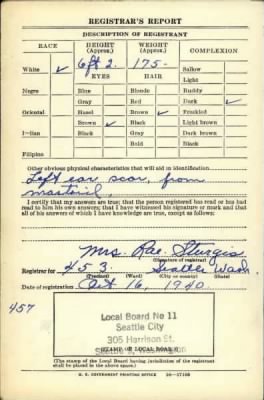 REGISTRAR'S REPORT
DESCRIPTION OF REGISTRANT
RACE HEIGHT (Approx.) WEIGHT (Approx.) COMPLEXION
White ✓ 6 ft 2. 175- Sallow
EYES HAIR Light
Negro Blue Blonde Ruddy
Gray Red Dark ✓
Oriental Hazel Brown ✓ Freckled
Brown ✓ Black Light brown
Indian Black Gray Dark brown
Bald Black
Filipino
Other obvious physical characteristics that will aid in identification
Left ear scar, from
mastoid.
I certify that my answers are true; that the person registered has read or has had
read to him his own answers; that I have witnessed his signature or mark and that
all of his answers of which I have knowledge are true, except as follows:
Mrs. Rae Sturgis
(Signature of registrar)
Registrar for 453 Seattle Wash.
(Precinct) (Ward) (City or county) (State)
Date of registration Oct 16, 1940.
457
Local Board No 11
Seattle City
305 Harrison St.
(STAMP OF LOCAL BOARD)
(The stamp of the Local Board having jurisdiction of the registrant
shall be placed in the above space.)
U. S. GOVERNMENT PRINTING OFFICE 16—17105